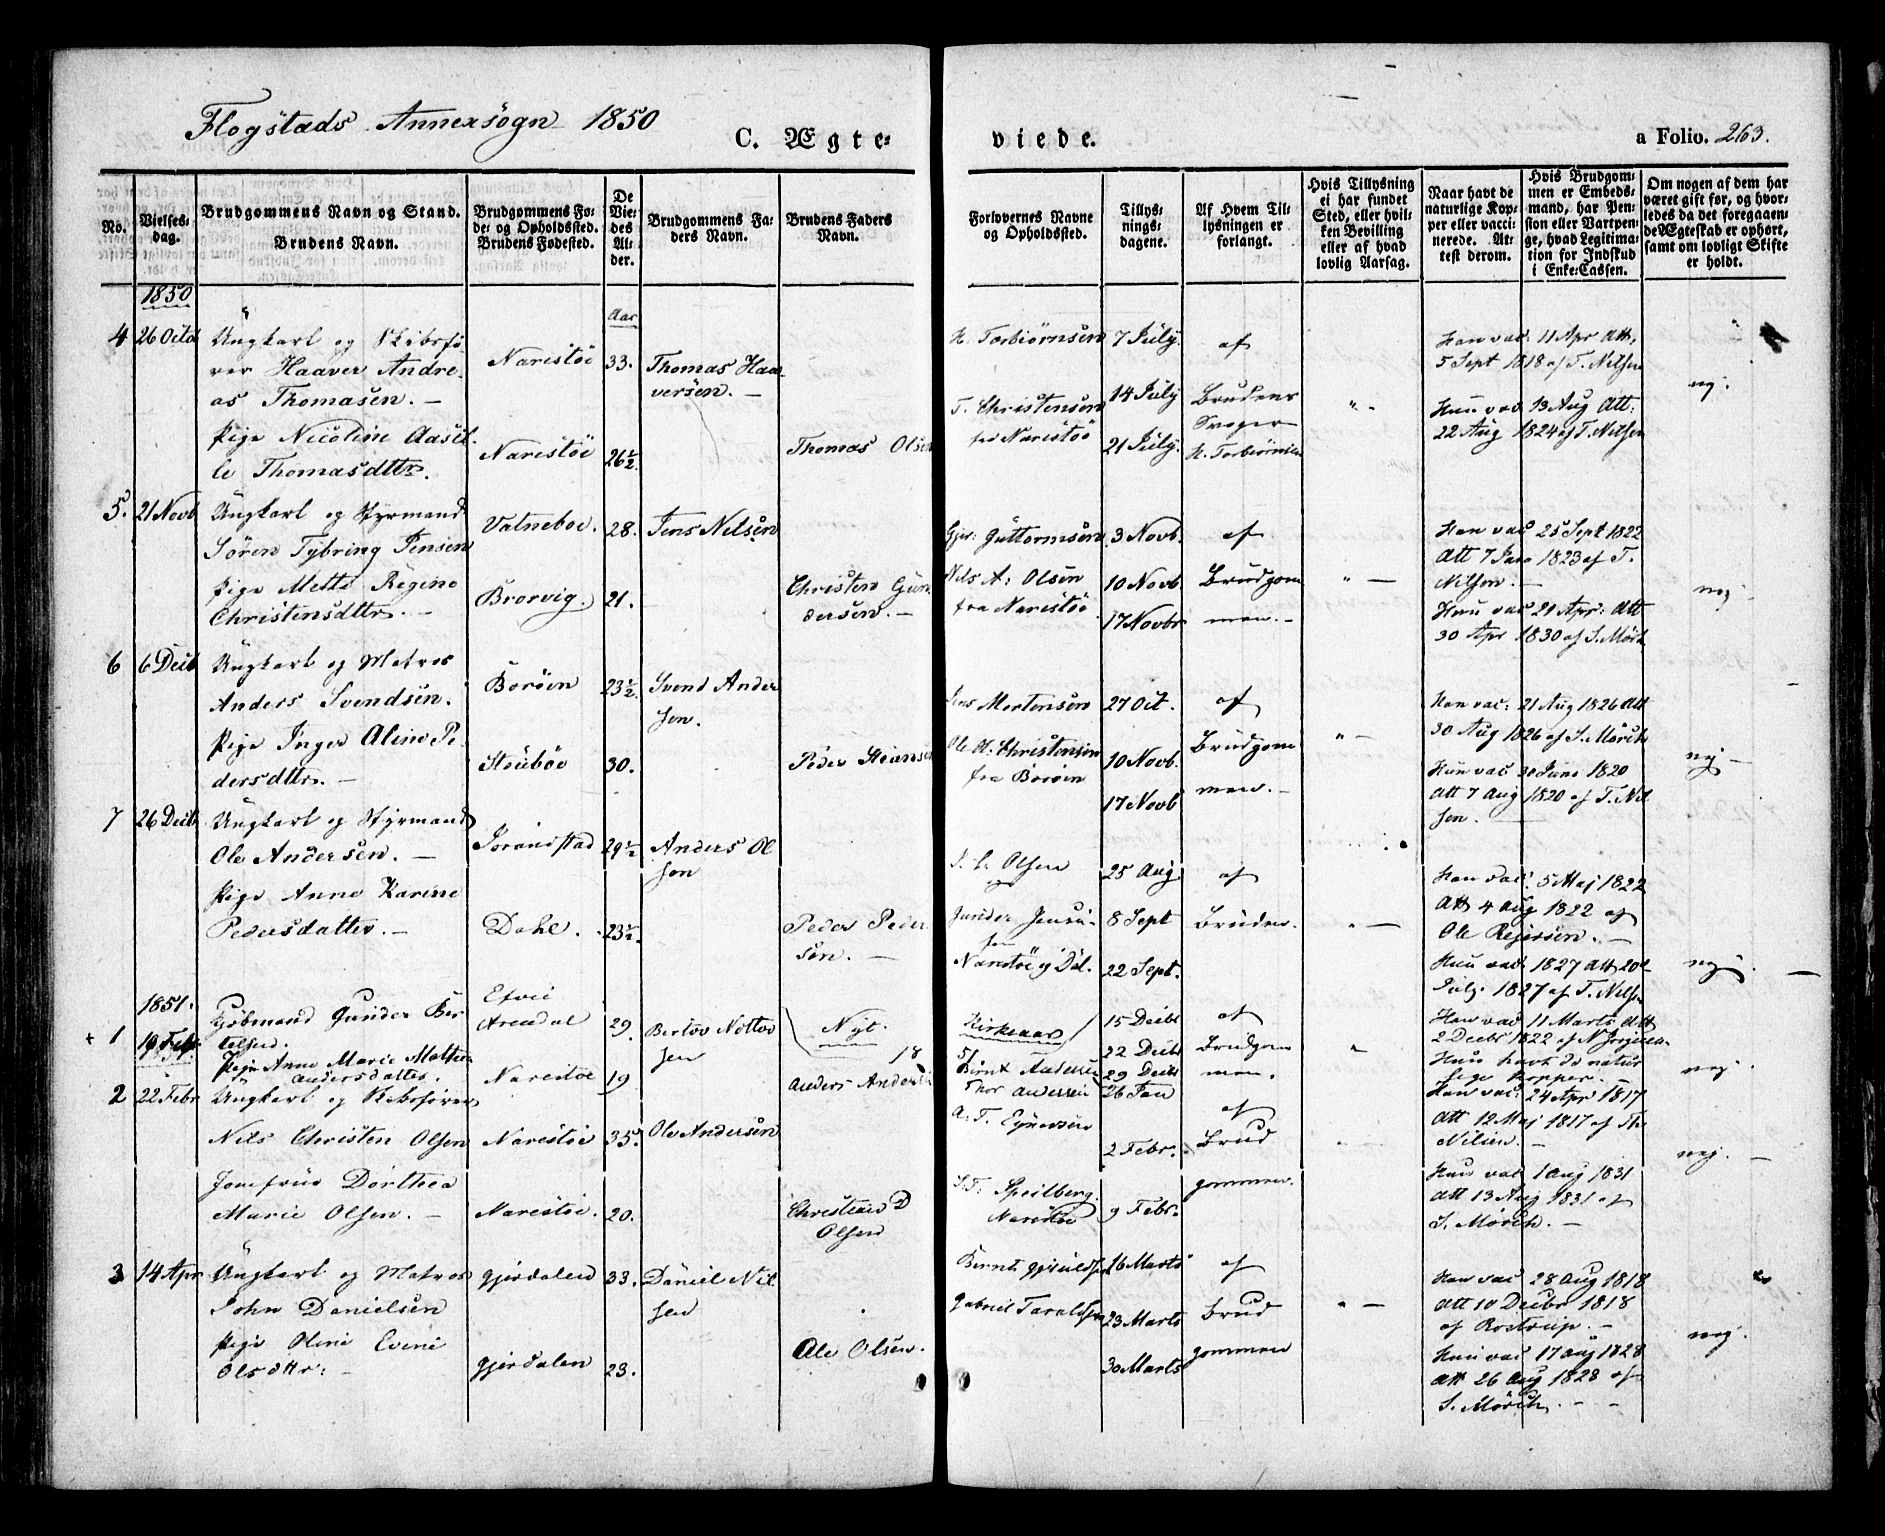 Flogstads Annexsogn 1850
C. Ægteviede.
a Folio. 263.
No.
Vielses-dag.
Brudgommens Navn og Stand. Brudens Navn.
Brudgommens Føde- og Opholdssted. Brudens Fødested.
De Viedes Alder.
Brudgommens Faders Navn.
Brudens Faders Navn.
Forlovernes Navne og Opholdssted.
Tillysningsdagene.
Af Hvem Tillysningen er forlangt.
Hvis Tillysning ei har fundet Sted, eller hvilken Bevilling eller af hvad lovlig Aarsag.
Naar havt de naturlige Kopper eller vaccinerede. Attest derom.
Hvis Brudgommen er Embedsmand, har Pension eller Vartpenge, hvad Legitimation for Indskud i Enke-Cassen.
Om nogen af dem har været gift før, og hvorledes da det foregaaende Ægteskab er ophørt, samt om lovligt Skifte er holdt.
1850
Aar
4
26 Octb
Ungkarl og Skibsfø-
rer Haaver Andre-
as Thomasen. —
Narestøe
33.
Thomas Haa-
versen. —
Pige Nicoline Aasil-
le Thomasdttr.
Narestöe
26½
Thomas Olsen
H. Torbiörnsen
T. Christensen
fra Narestöe
7 July
14 July
21 July.
af
Brudens
Svoger
H. Torbiörnsen
Han vac: 11 Apr Att,
5 Sept 1818 af T. Nilsen
Hun vac 13 Aug Att:
22 Aug 1824 af T. Nilsen
nej.
5.
21 Novb
Ungkarl og Styrmand
Sören Tybring Jensen
Vatneboe.
28.
Jens Nelsen
Pige Mette Regine
Christensdttr. —
Brorvig.
21.
Christen Gun-
dersen. —
Guttormsen
Nils A: Olsen
fra Narestöe
3 Novb.
10 Novb
17 Novbr
af
Brudgom
men. —
Han vac 25 Sept 1822
Att 7 Jan 1823 af T.
Nilsen. —
Hun vac 21 Apr: Att
30 Apr 1830 af S. Mörch
nej
6
6 Decb
Ungkarl og Matros
Anders Svendsen.
Boröen
23½
Svend Ander
sen.
Pige Inger Aline Pe-
dersdttr. —
Stöüböe
30.
Peder
Jens Mortensen
Ole H. Christensen
fra Boröen
27 Oct.
10 Novb.
17 Novb
af
Brudgom
men. —
Han vac: 21 Aug 1826 Att
30 Aug 1826 af S. Mörch
Hun vac 30 Juni 1820
Att 7 Aug 1820 af T. Nil
sen.
nej
7
26 Decb
Ungkarl og Styrmand
Ole Andersen. —
29½
Anders Ol
sen
Pige Anne Karine
Pedersdatter. —
Dahl.
23½
Peder Peder
sen. —
Olsen
Gunder
Narestöe
25 Aug
8 Sept
22 Sept.
af
Bruden.
Han vac: 5 Maj 1822
Att 4 Aug 1822 af
Ole Rejersen. —
Hun vac 1827 Att 20de
July 1827 af T. Nilsen
nej
1851.
1
19 Febr
Kjöbmand Gunder Ber
telsen.
Arendal
29.
sen
Nyt.
18
Pige Anne Marie Mathea
Andersdatter.
Narestöe
19
Anders Andersen
Kirkeaar
51
Bernt Andersen
Thor Andersen
15 Decbr
22 Decbr
29 Decbr
26 Jan
af
Brudgom
men.
Han vac 11 Marts Att
2 Decbr 1822 af N Jörgensen
Hun havt de natur
lige kopper. —
nej
2
22 Febr
Ungkarl og Skibsförer
Nils Christen Olsen
Narestöe
35.
Ole Andersen
Jomfrue Dorthea
Marie Olsen. —
Narestöe.
20.
Christian D
Olsen
A. T. Eynersen
Speilberg.
Narestöe
2 Febr.
9 Febr.
af
Brud
gommen.
Han vac: 24 Apr 1817
Att 12 Maj 1817 af Th
Nilsen. —
Hun vac 1 Aug 1831
Att 13 Aug 1831 af
S. Mörch. —
nej.
3
14 Apr
Ungkarl og Matros
John Danielsen
gjerdalen
33.
Daniel Nil
sen
Pige Oline Evine
Olsdttr: —
gjerdalen
23.
Ole Olsen.
Bernt
Gabriel Taraldsen
16 Marts
23 Marts
30 Marts
af
Brud
gommen
Han vac 28 Aug 1818
Att 10 Decbr 1818
af Rostrup. —
Hun vac 17 Aug 1828
Att 26 Aug 1828 af
S. Mörch. —
nej.